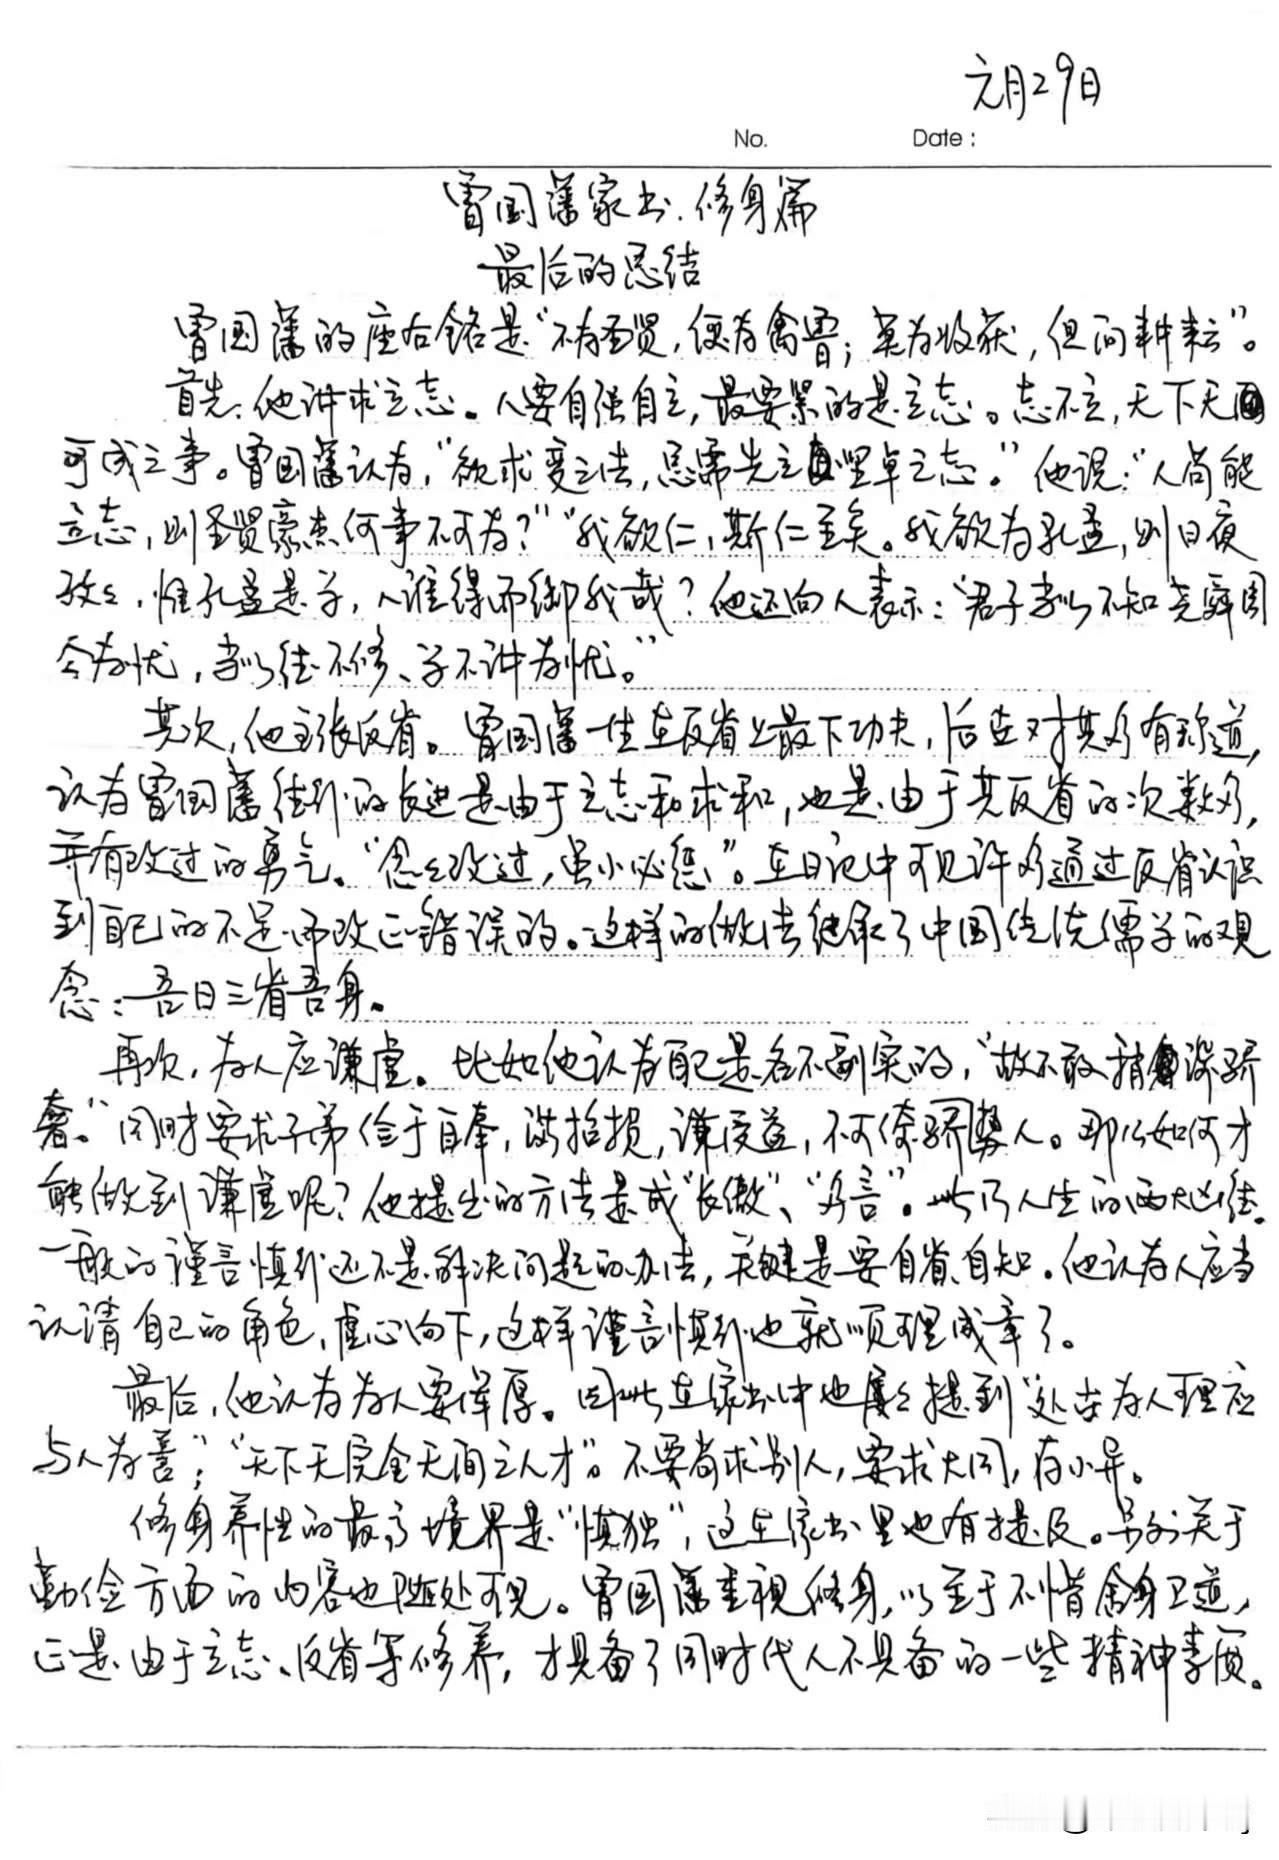 元月29日
No. Date:
曾国藩家书.修身篇
最后的总结
曾国藩的座右铭是“不为圣贤,便为禽兽;莫为收获,但问耕耘”。
首先,他讲求立志。人要自强自立,最要紧的是立志。志不立,天下无
可成之事。曾国藩认为,“欲求变之法,总需先立坚卓之志。”他说:“人尚能
立志,则圣贤豪杰何事不可为?”“我欲仁,斯仁至矣。我欲为孔孟,则日夜
孜々,惟孔孟是学,人谁得而御我哉?他还向人表示:“君子当以不知尧舜周
公为忧,当以德不修、学不讲为忧。”
其次,他主张反省。曾国藩一生在反省上最下功夫,后世对其多有称道,
认为曾国藩德行的长进是由于立志和求和,也是由于其反省的次数多,
并有改过的勇气。“念々改过,虽小必惩”。在日记中可见许多通过反省认识
到自己的不足而改正错误的。这样的做法继承了中国传统儒学的观
念:吾日三省吾身。
再次,为人应谦虚。比如他认为自己是名不副实的,“故不敢稍涉骄
奢。”同时要求子弟俭于自奉,满招损,谦受益,不可倚骄势人。那么如何才
能做到谦虚呢?他提出的方法是戒“长傲”、“多言”。此乃人生的两大凶德。
一般的谨言慎行还不是解决问题的办法,关键是要自省、自知。他认为人应当
认清自己的角色,虚心向下,这样谨言慎行也就顺理成章了。
最后,他认为为人要浑厚。因此在家书中也屡々提到“处世为人理应
与人为善”;“天下无完全无间之人才”。不要苛求别人,要求大同,存小异。
修身养性的最高境界是“慎独”,这在家书里也有提及。另外关于
勤俭方面的内容也随处可见。曾国藩重视修身,以至于不惜舍身卫道,
正是由于立志、反省等修养,才具备了同时代人不具备的一些精神素质。